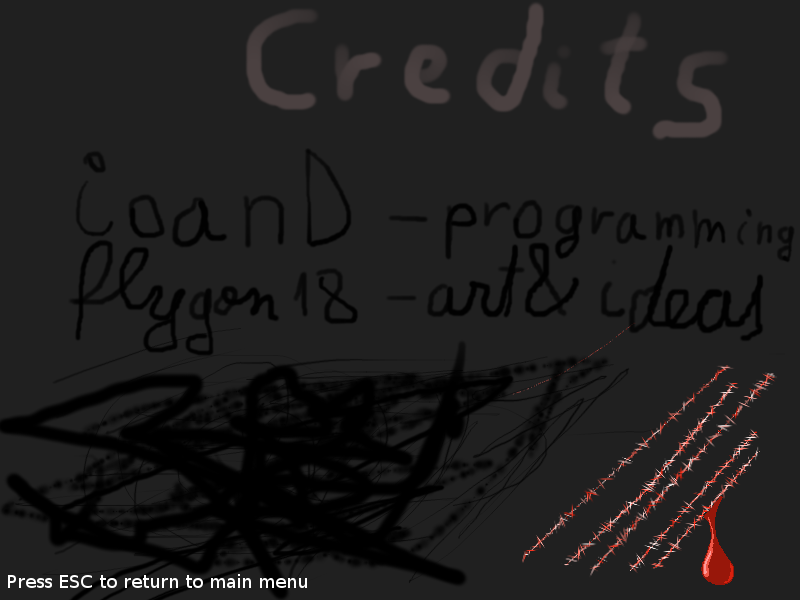 Credits
ioanD - programming
flygon18 - art & ideas
Press ESC to return to main menu